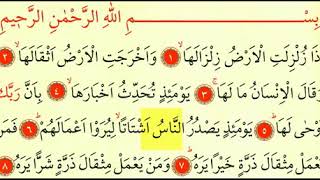 بِسْمِ اللهِ الرَّحْمٰنِ الرَّحِيْمِ
ذَا زُلْزِلَتِ الْاَرْضُ زِلْزَالَهَا ۙ ۱ وَاَخْرَجَتِ الْاَرْضُ اَثْقَالَهَا ۙ ۲
وَقَالَ الْاِنْسَانُ مَا لَهَا ۚ ۳ يَوْمَئِذٍ تُحَدِّثُ اَخْبَارَهَا ۙ ۴ بِاَنَّ رَبَّكَ
وْحٰى لَهَا ؕ ۵ يَوْمَئِذٍ يَّصْدُرُ النَّاسُ اَشْتَاتًا ۙ لِّيُرَوْا اَعْمَالَهُمْ ؕ ۶ فَمَنْ
يَّعْمَلْ مِثْقَالَ ذَرَّةٍ خَيْرًا يَّرَهٗ ؕ ۷ وَمَنْ يَّعْمَلْ مِثْقَالَ ذَرَّةٍ شَرًّا يَّرَهٗ ۸